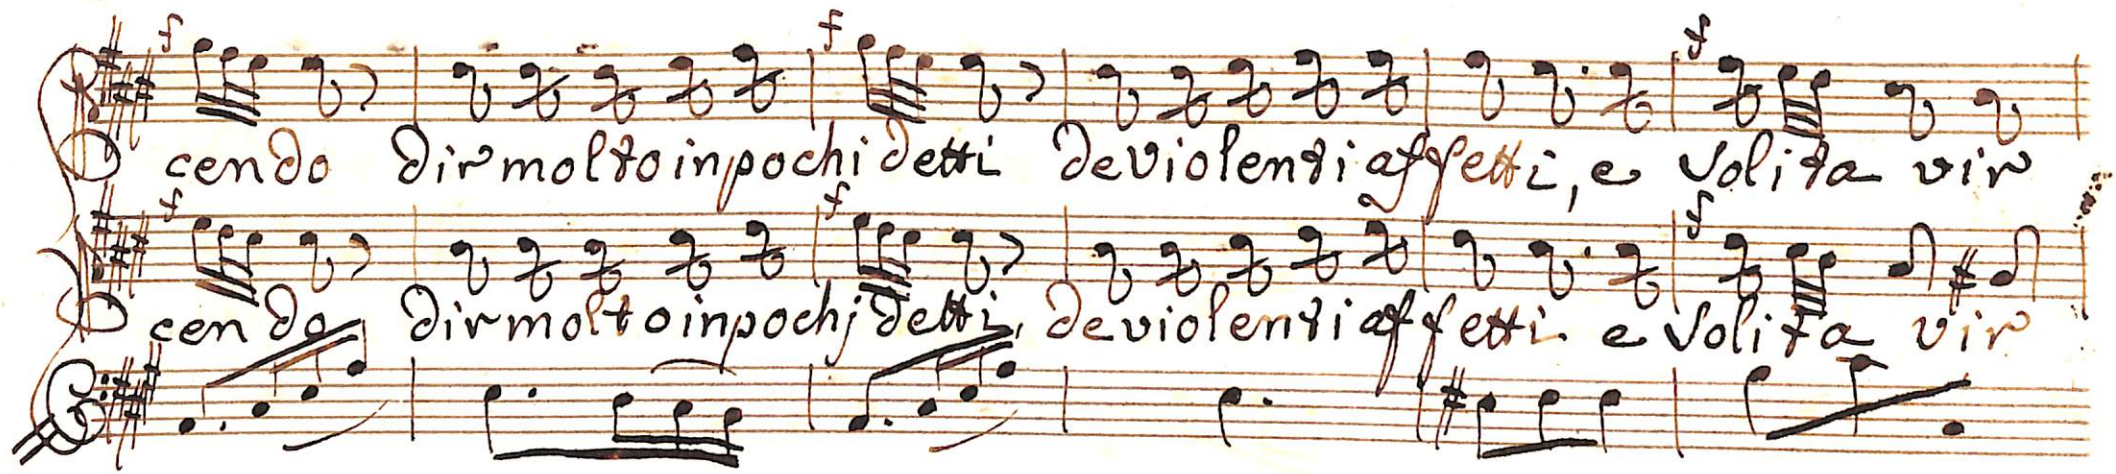 f f f
cendo dir molto in pochi detti de violenti affetti, e solita vir
f f f
cendo dir molto in pochj detti, de violenti affetti. e solita vir